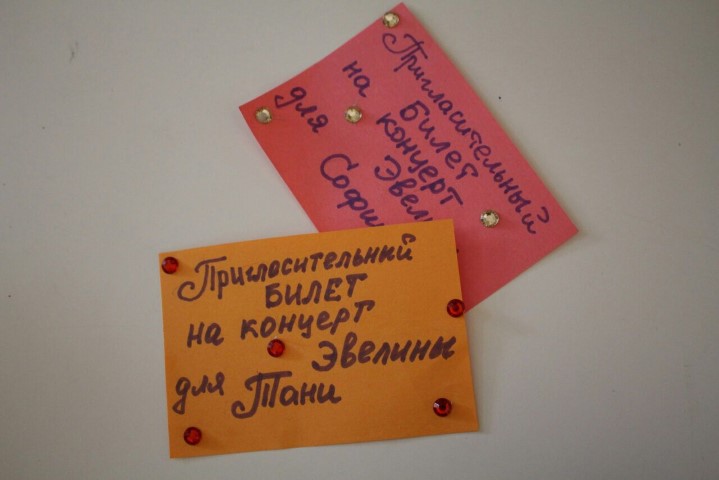 Пригласительный
Билет
на концерт
для
Пригласительный
БИЛЕТ
на концерт
Эвелины
для Тани